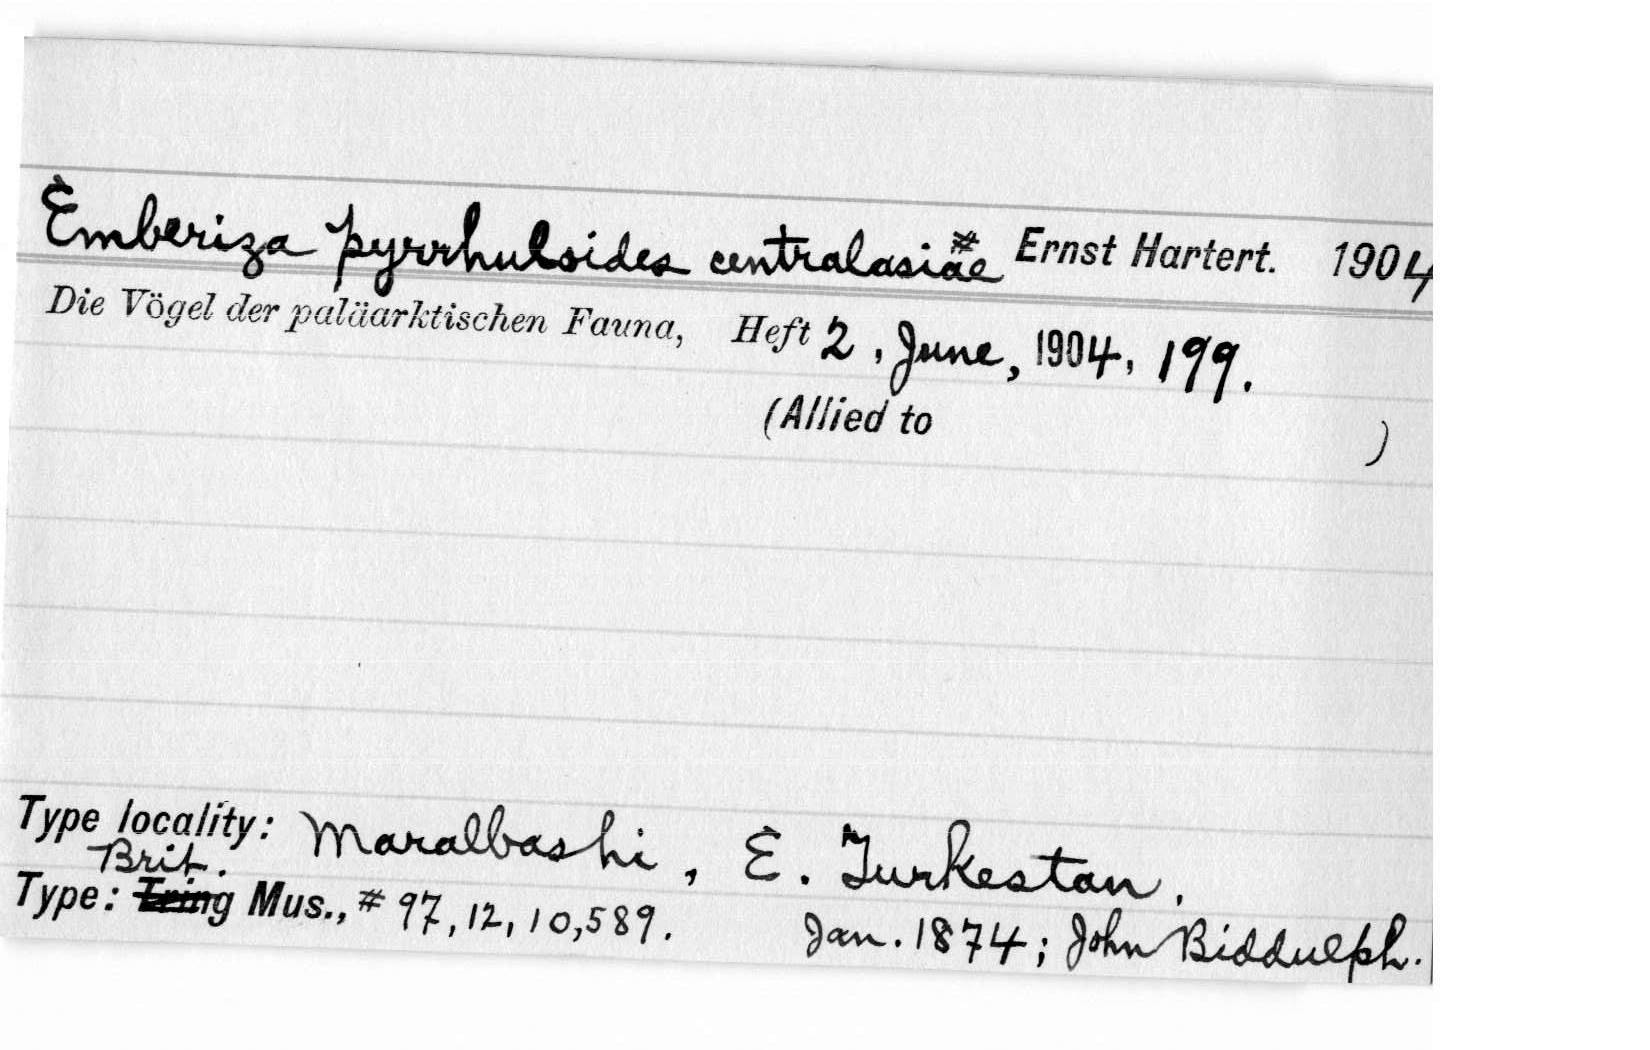 Emberiza pyrrhuloides centralasiae # Ernst Hartert. 1904
Die Vögel der paläarktischen Fauna, Heft 2, June, 1904, 199.
(Allied to )
Type locality: Maralbashi, E. Turkestan.
Brit.
Type: Tring Mus., # 97,12,10,589. Jan. 1874; John Biddulph.